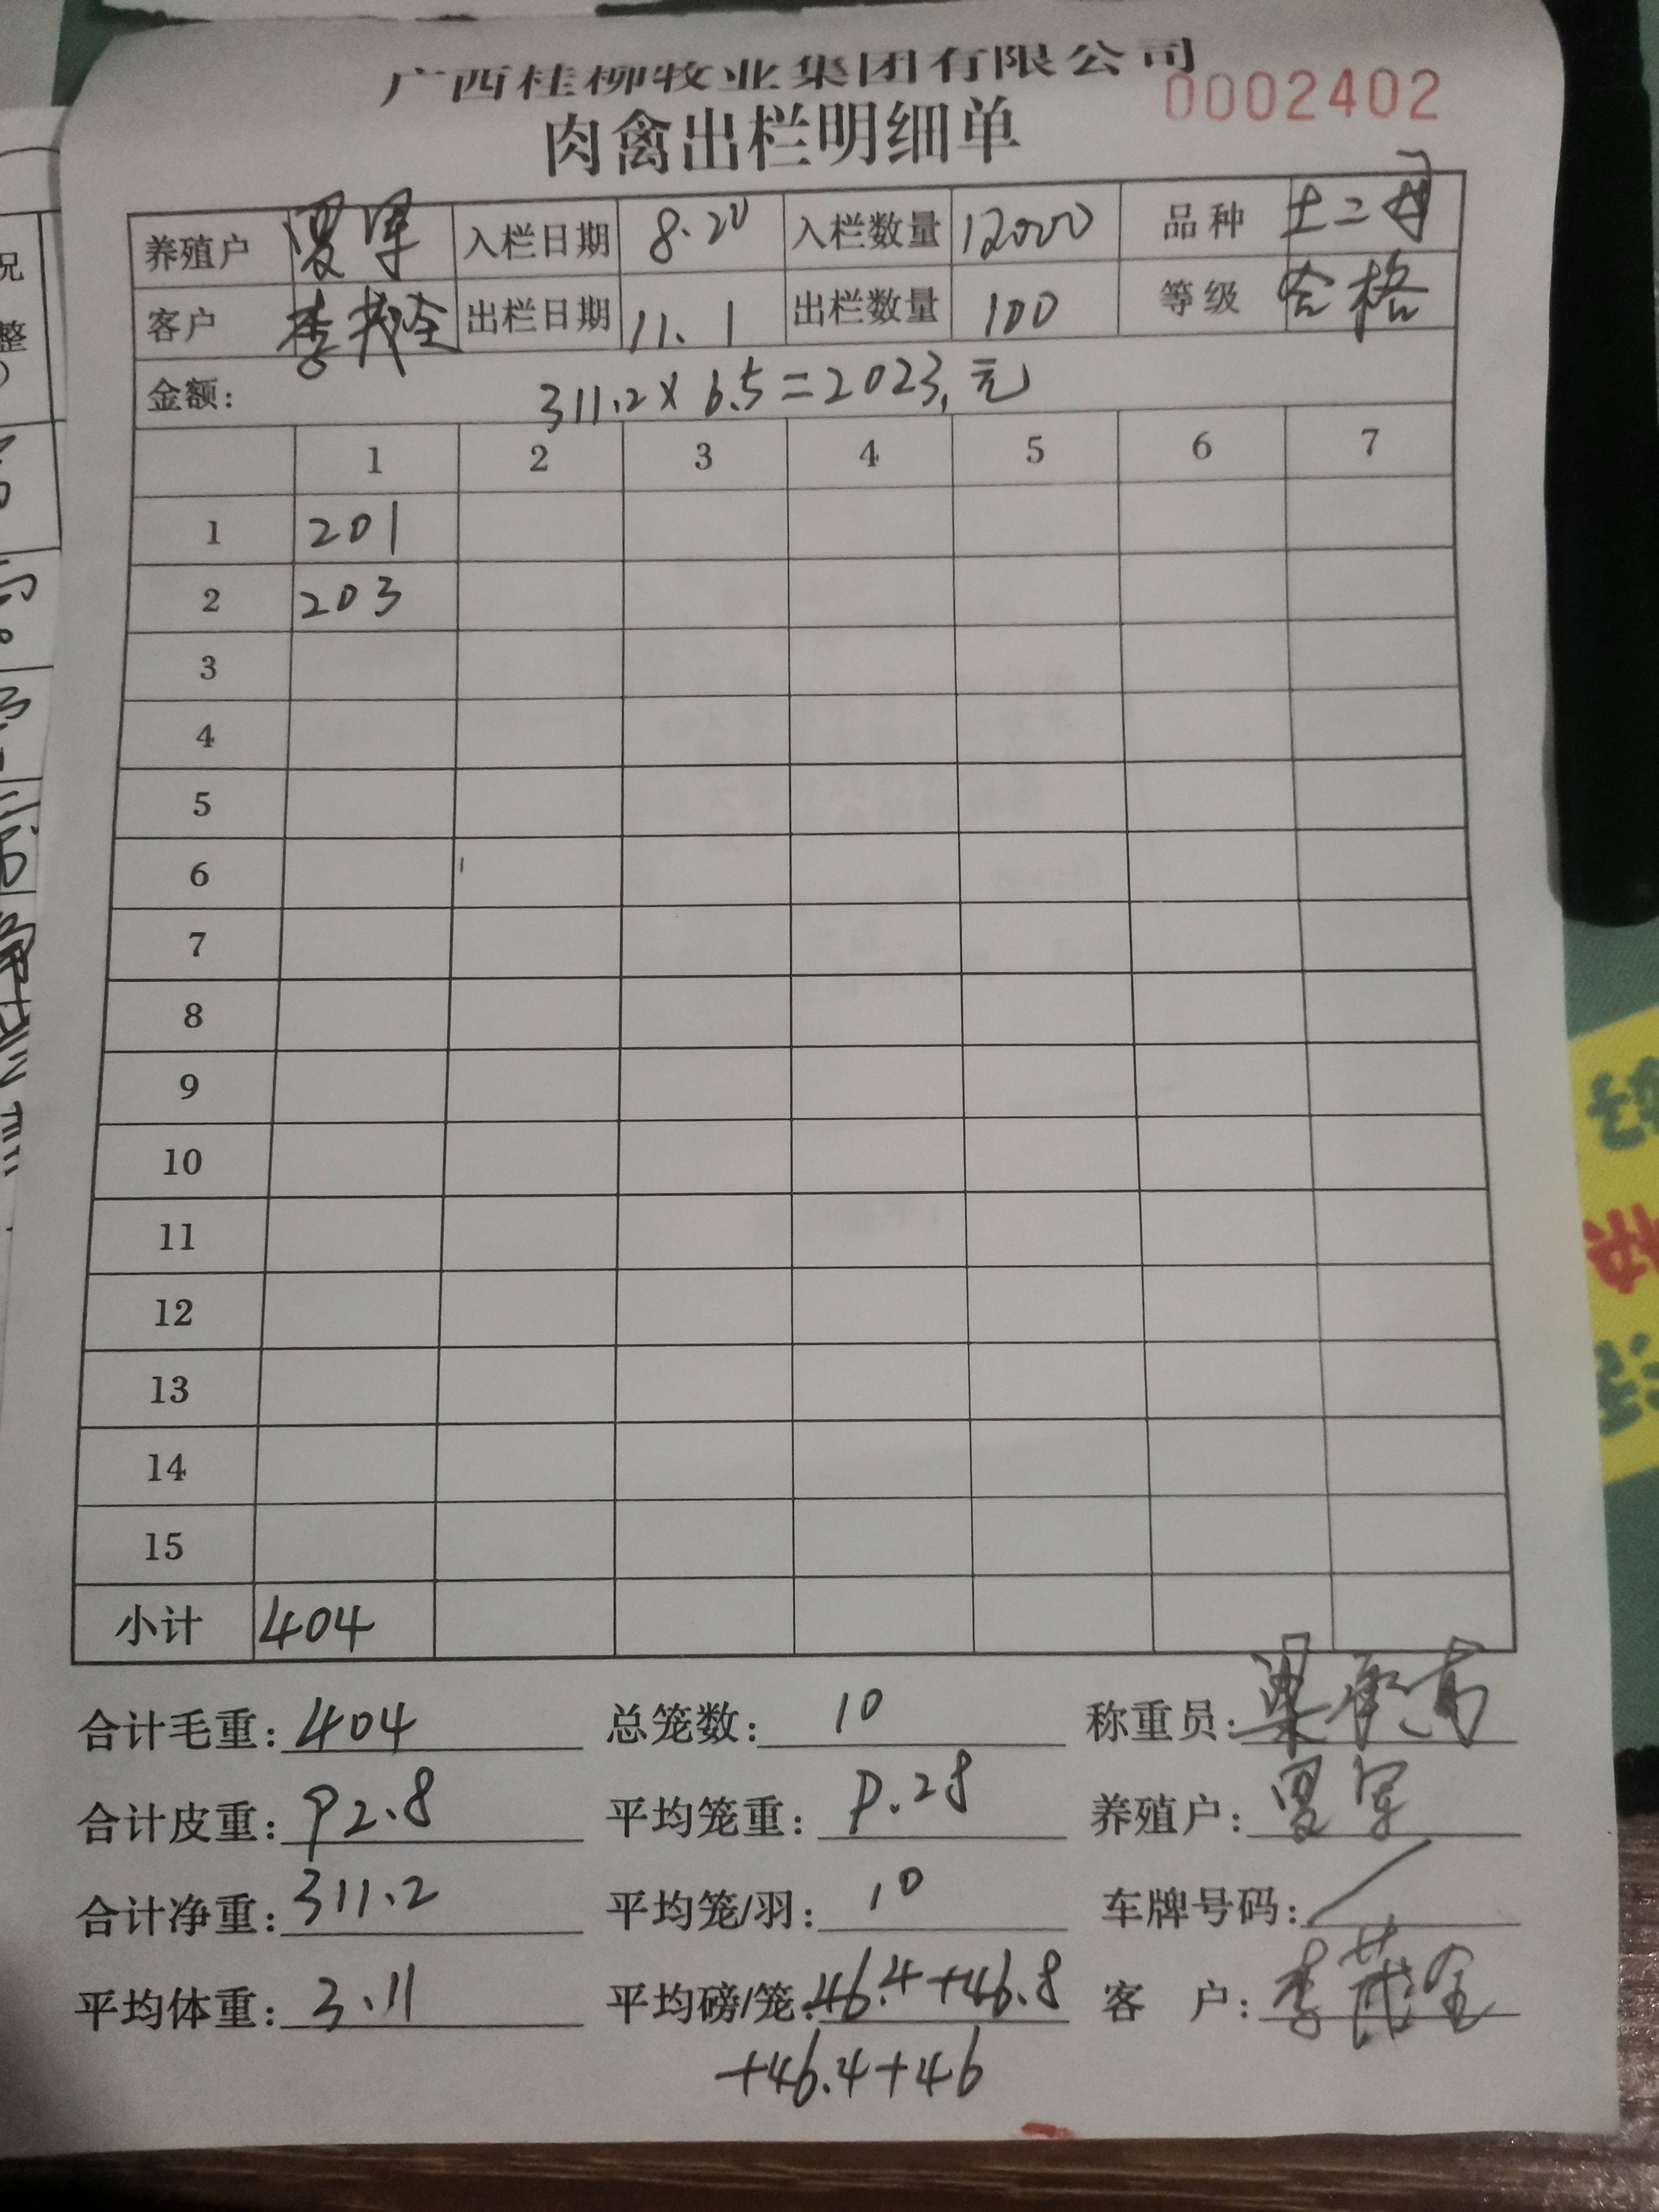 广西桂柳牧业集团有限公司
0002402
肉禽出栏明细单
养殖户 罗军 入栏日期 8.20 入栏数量 12000 品种 土二
客户 李茂全 出栏日期 11.1 出栏数量 100 等级 合格
金额: 311.2×6.5=2023.元
1 2 3 4 5 6 7
1 201
2 203
3
4
5
6
7
8
9
10
11
12
13
14
15
小计 404
合计毛重: 404 总笼数: 10 称重员: 梁
合计皮重: 92.8 平均笼重: 9.28 养殖户: 罗军
合计净重: 311.2 平均笼/羽: 10 车牌号码: /
平均体重: 3.11 平均磅/笼: 46.4+46.8 客 户: 李茂全
+46.4+46